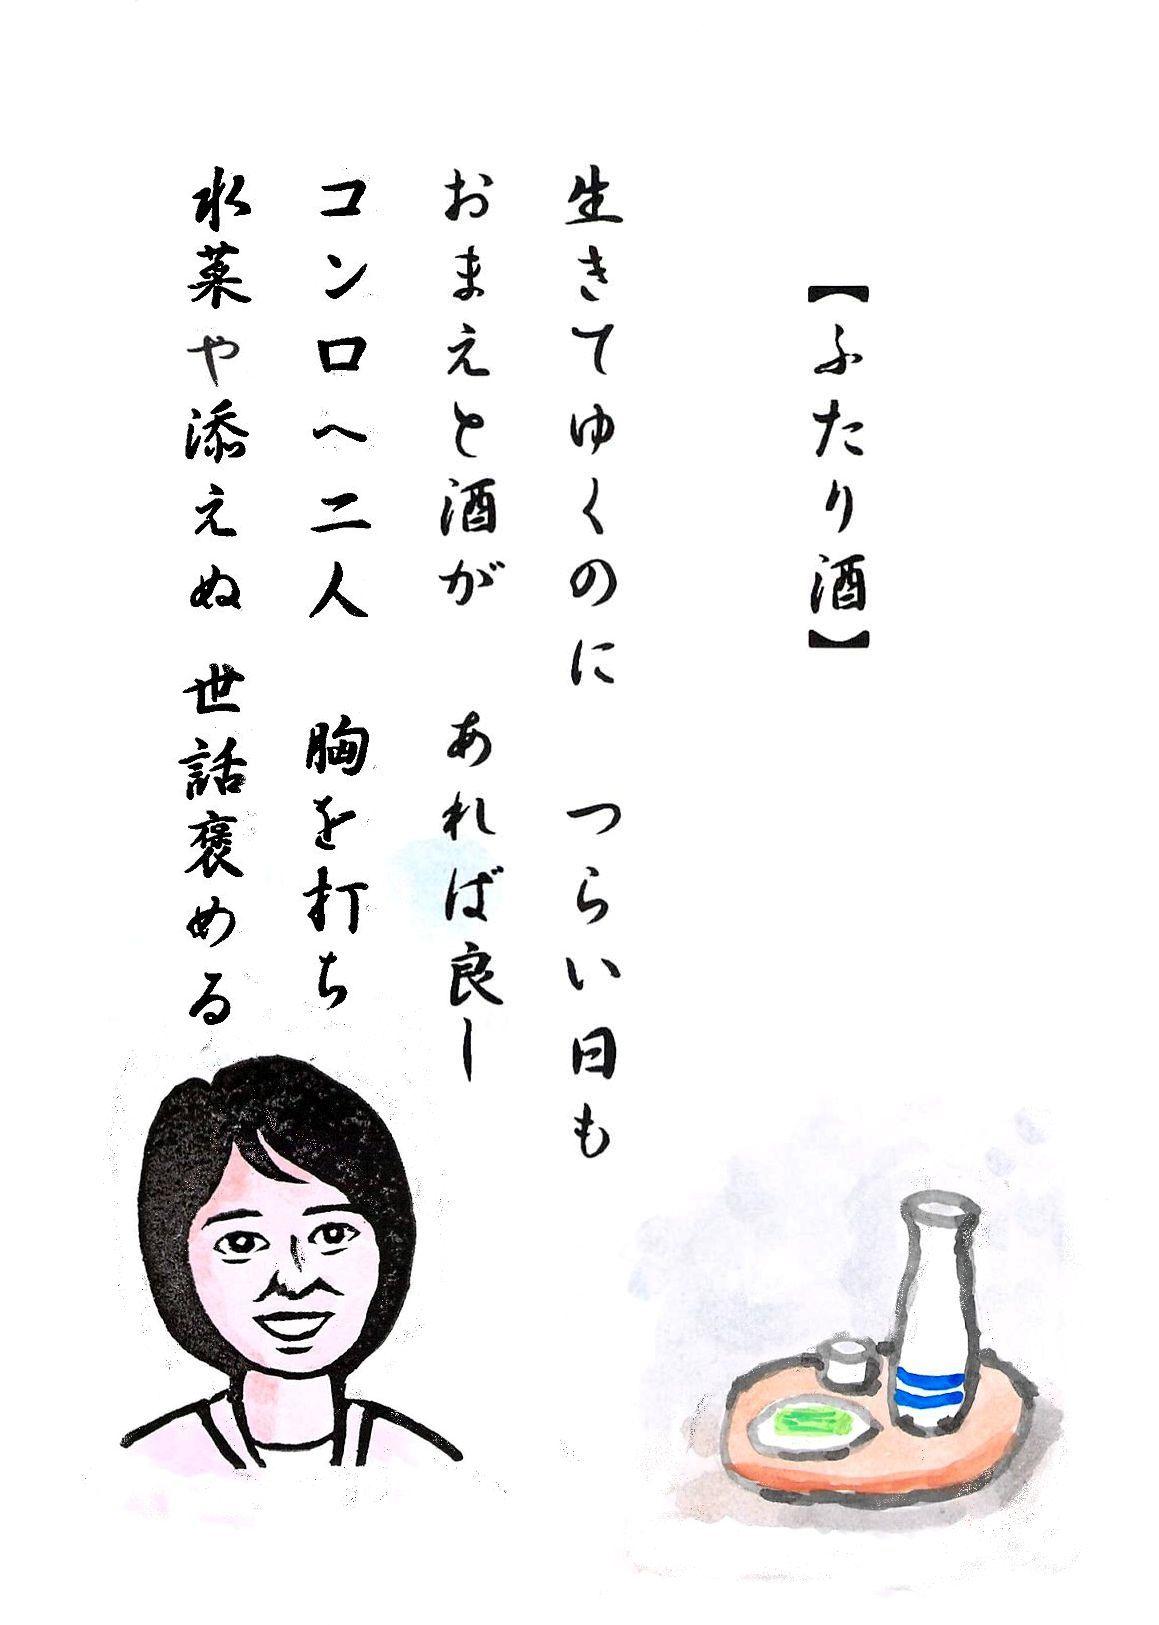 【ふたり酒】
生きてゆくのに　つらい日も
おまえと酒が　あれば良し
コンロへ二人　胸を打ち
水菜や添えぬ　世話褒める